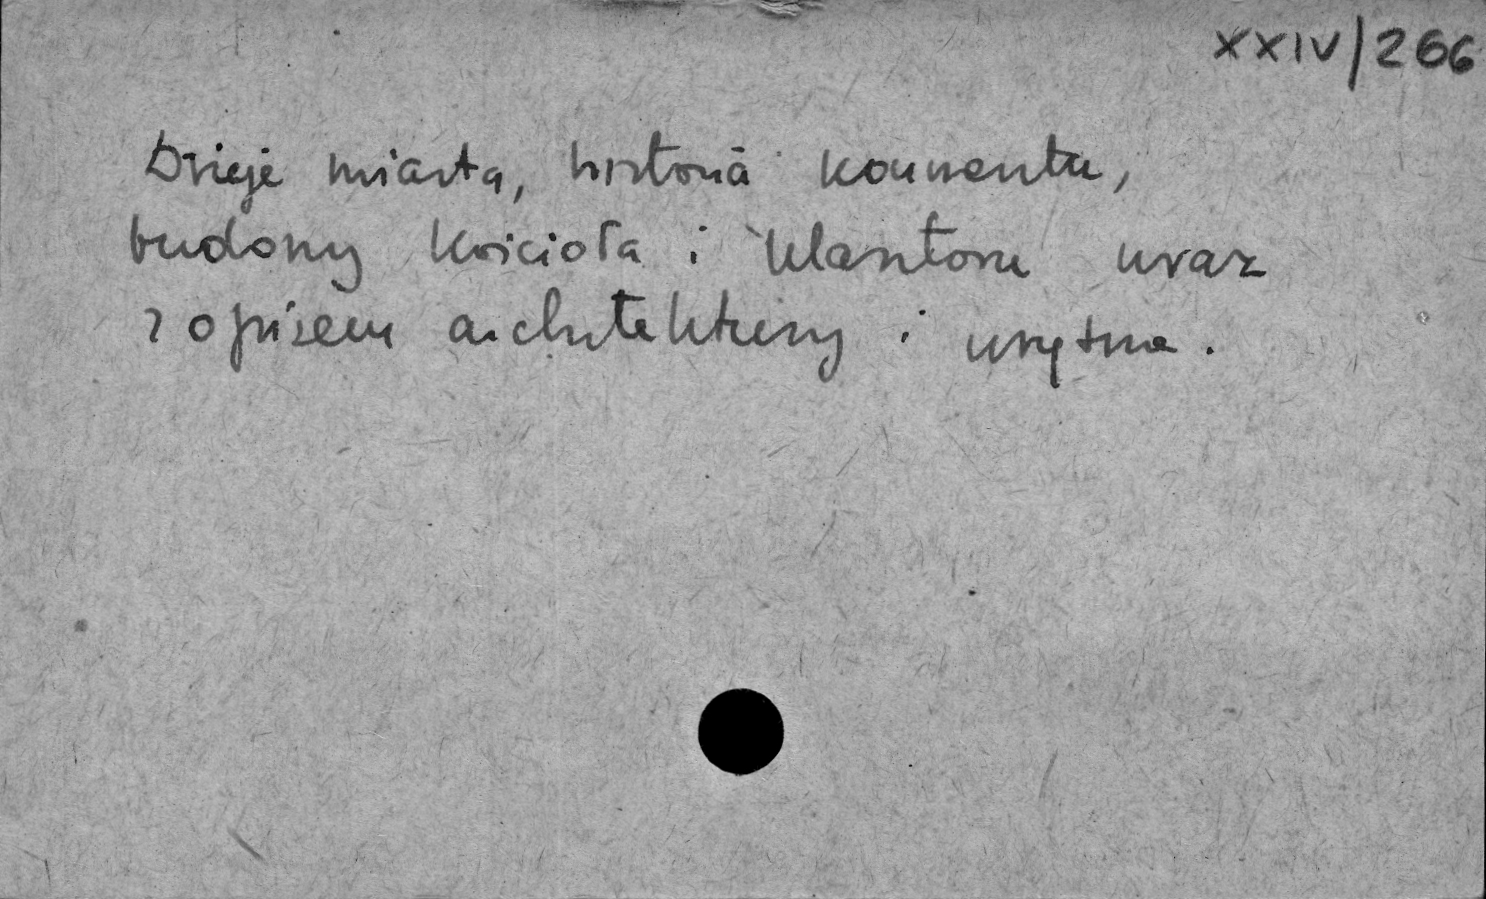 XXIV/266
Dzieje miasta, historia konwentu,
budowy kościoła i klasztoru wraz
z opisem architektury i wnętrza.